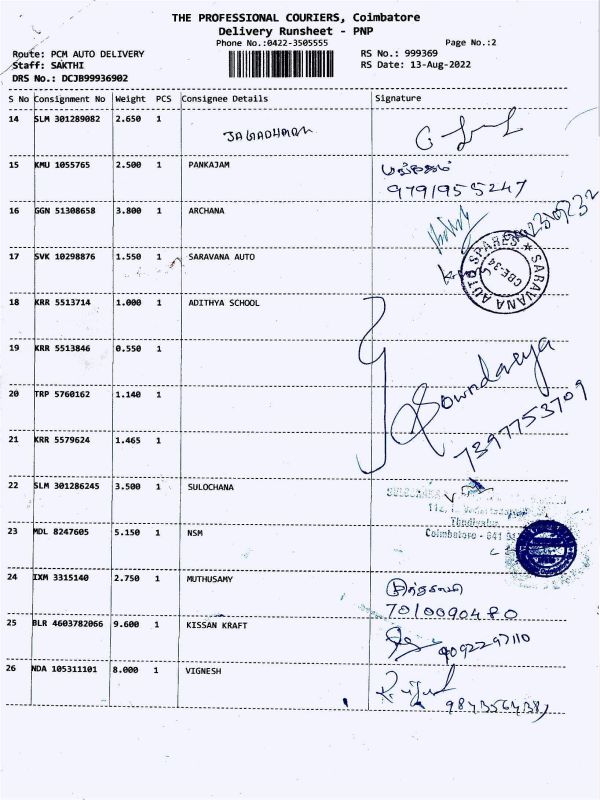 THE PROFESSIONAL COURIERS, Coimbatore
Delivery Runsheet - PNP
Phone No.:0422-3505555 Page No.:2
Route: PCM AUTO DELIVERY RS No.: 999369
Staff: SAKTHI RS Date: 13-Aug-2022
DRS No.: DCJB99936902
S No Consignment No Weight PCS Consignee Details Signature
14 SLM 301289082 2.650 1
15 KMU 1055765 2.500 1 PANKAJAM
9791955247
16 GGN 51308658 3.800 1 ARCHANA
17 SVK 10298876 1.550 1 SARAVANA AUTO
SARAVANA AUTO SPARES ★
CBE-34
18 KRR 5513714 1.000 1 ADITHYA SCHOOL
19 KRR 5513846 0.550 1
Sowndarya
20 TRP 5760162 1.140 1
7397753709
21 KRR 5579624 1.465 1
22 SLM 301286245 3.500 1 SULOCHANA
23 MDL 8247605 5.150 1 NSM
Coimbatore - 641
24 IXM 3315140 2.750 1 MUTHUSAMY
7010090480
25 BLR 4603782066 9.600 1 KISSAN KRAFT
9092297110
26 NDA 105311101 8.000 1 VIGNESH